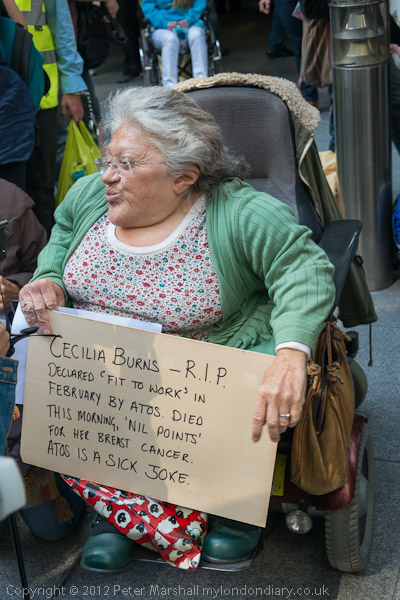 CECILIA BURNS – R.I.P.
DECLARED 'FIT TO WORK' IN
FEBRUARY BY ATOS. DIED
THIS MORNING, 'NIL POINTS'
FOR HER BREAST CANCER.
ATOS IS A SICK JOKE.
Copyright © 2012 Peter Marshall mylondondiary.co.uk